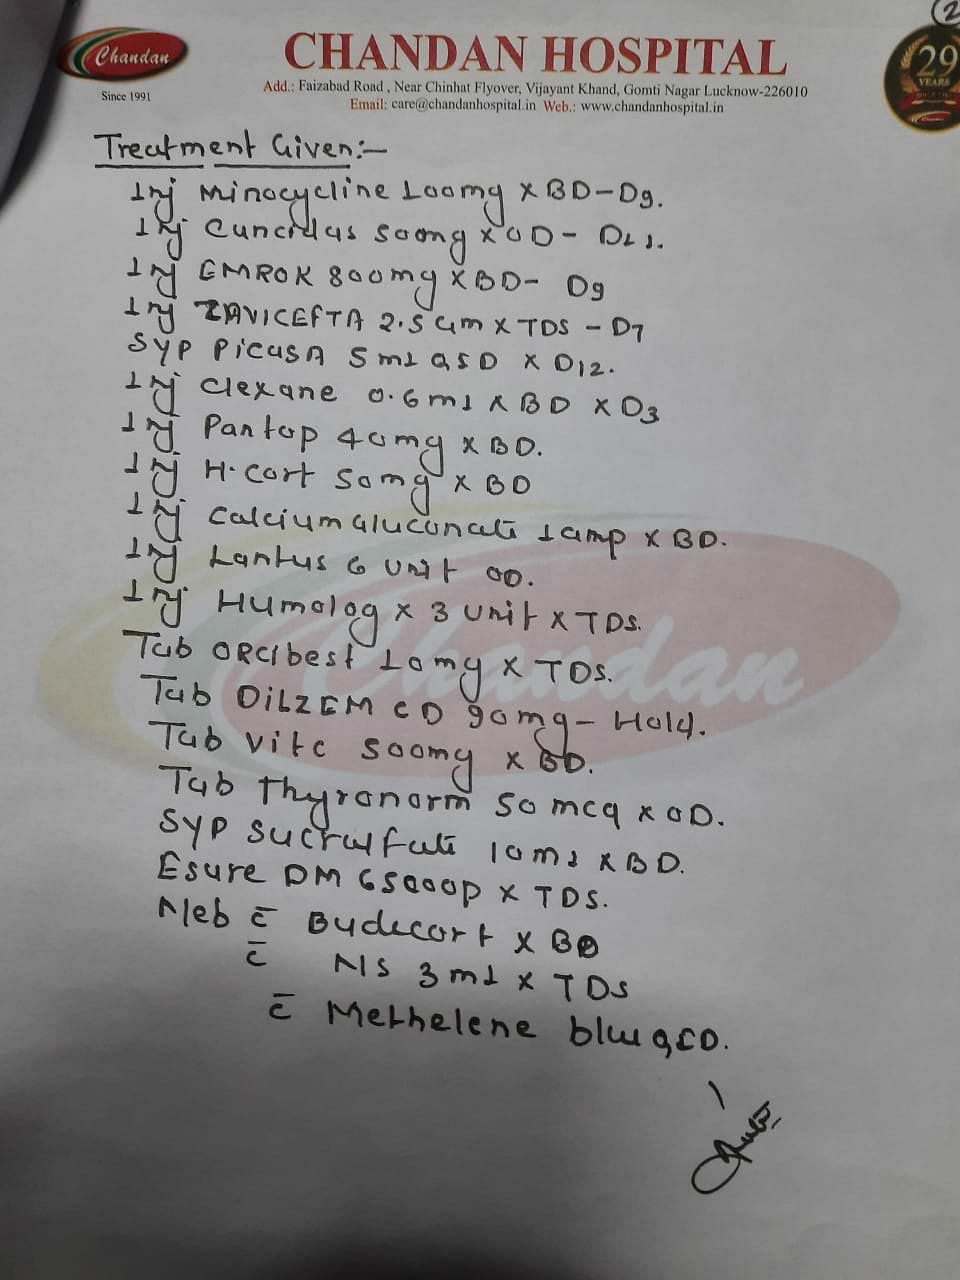 2
Chandan
Since 1991
CHANDAN HOSPITAL
Add.: Faizabad Road , Near Chinhat Flyover, Vijayant Khand, Gomti Nagar Lucknow-226010
Email: care@chandanhospital.in Web.: www.chandanhospital.in
29
YEARS
Treatment Given:-
Inj Minocycline 100mg x BD-D9.
Inj Cuncidas 500mg x OD- D11.
Inj EMROK 800mg x BD- D9
Inj ZAVICEFTA 2.5Gm x TDS - D7
Syp PICASA 5ml QSD x D12.
Inj Clexane 0.6ml x BD x D3
Inj Pantop 40mg x BD.
Inj H.cort 50mg x BD
Inj Calcium Gluconate 1amp x BD.
Inj Lantus 6 Unit OD.
Inj Humolog x 3 Unit x TDS.
Tab ORCIbest 10mg x TDS.
Tab DILZEM CD 90mg- Hold.
Tab Vitc 500my x BD.
Tab Thyronorm 50 mcg x OD.
Syp Sucralfate 10ml x BD.
Esure DM 6Scoop x TDS.
Neb c̄ Budecort x BD
c̄ NS 3ml x TDS
c̄ Methelene blue QSD.
Chandan